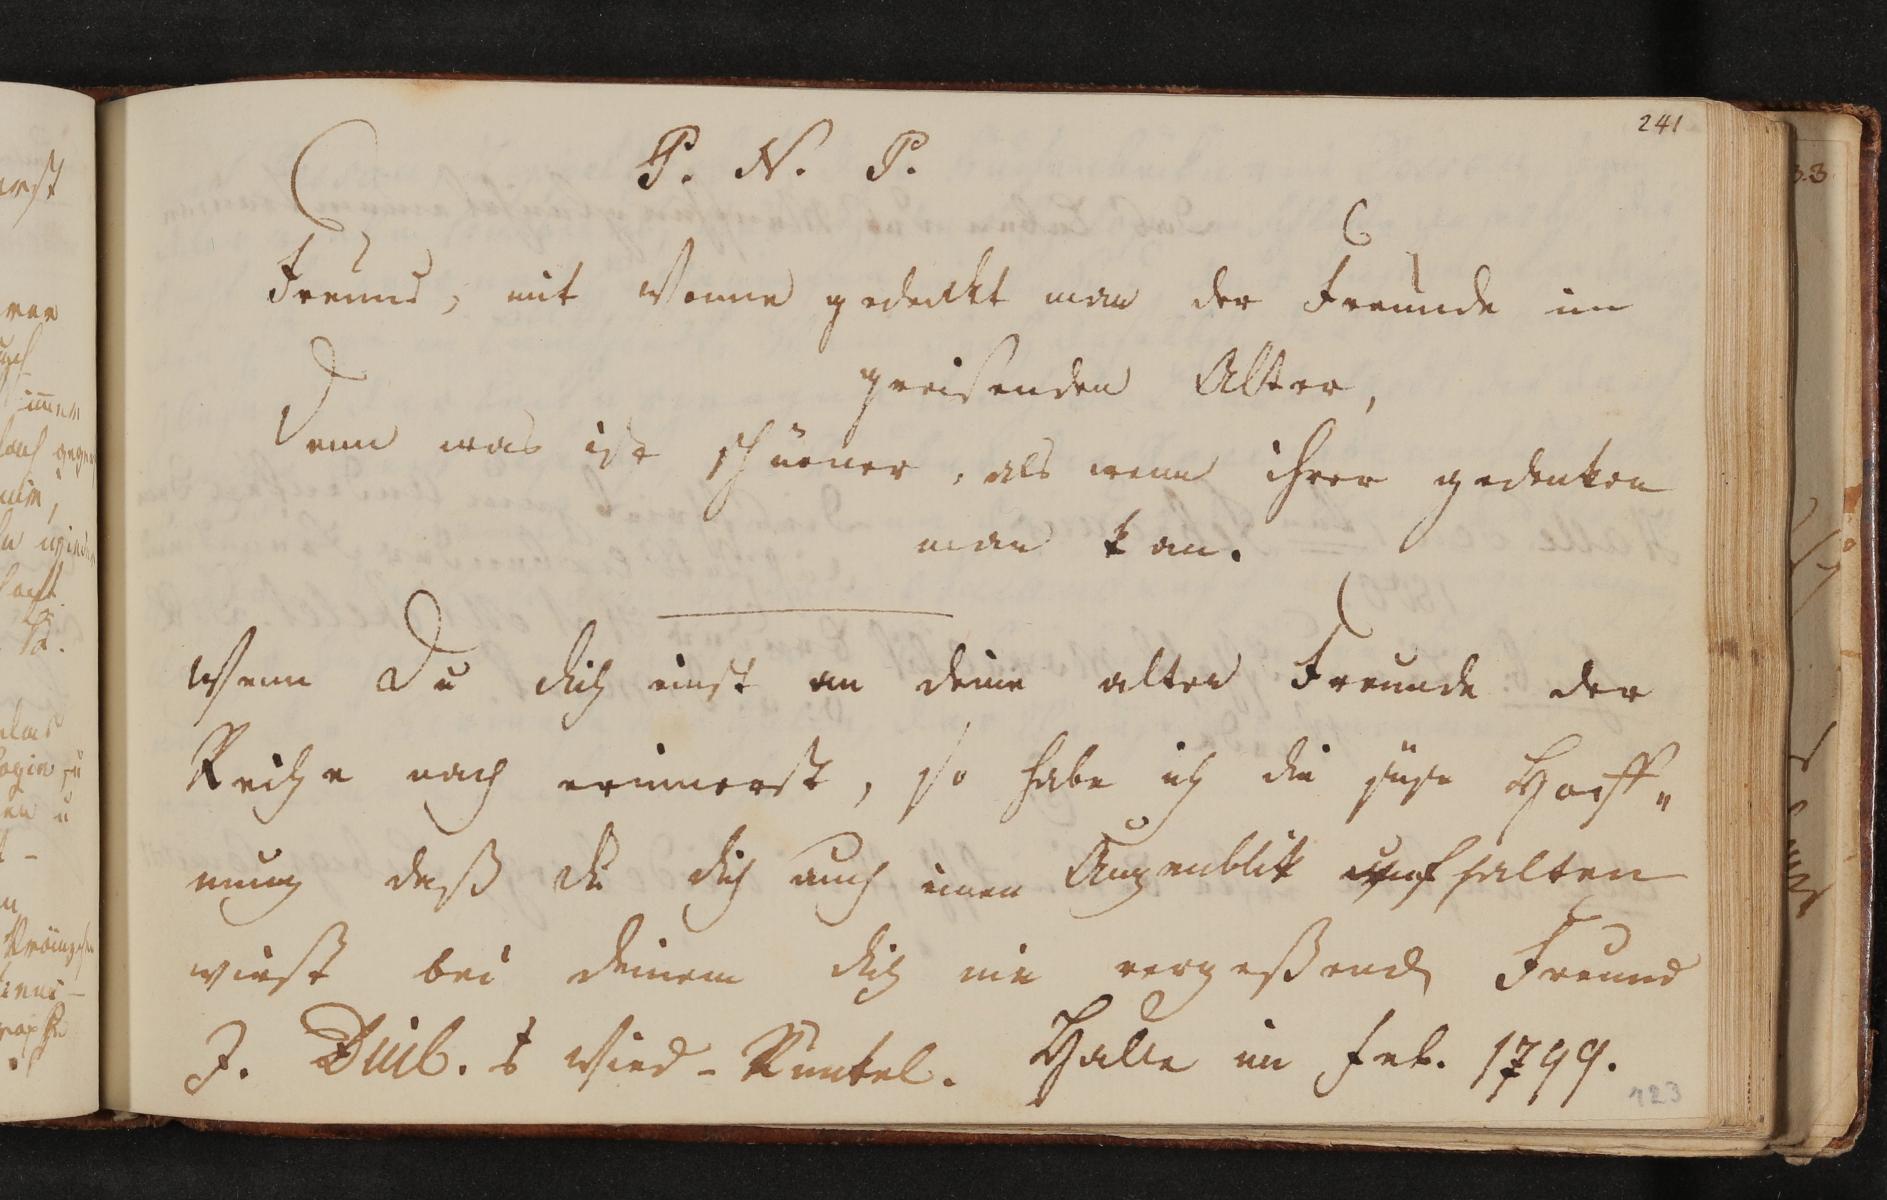 241
P. N. P.
Freund, mit Wonne gedenkt man der Freunde im
greisenden Alter,
Denn was ist schöner, als wenn ihrer gedenken
man kan.
Wenn Du dich einst an deine alten Freunde der
Reihe nach erinnerst, so habe ich die süse Hoff„
nung daß du dich auch einen Augenblik aufhalten
wirst bei deinem dich nie vergeßend Freund
J. Wied-Runkel. Halle im Feb. 1799.
123